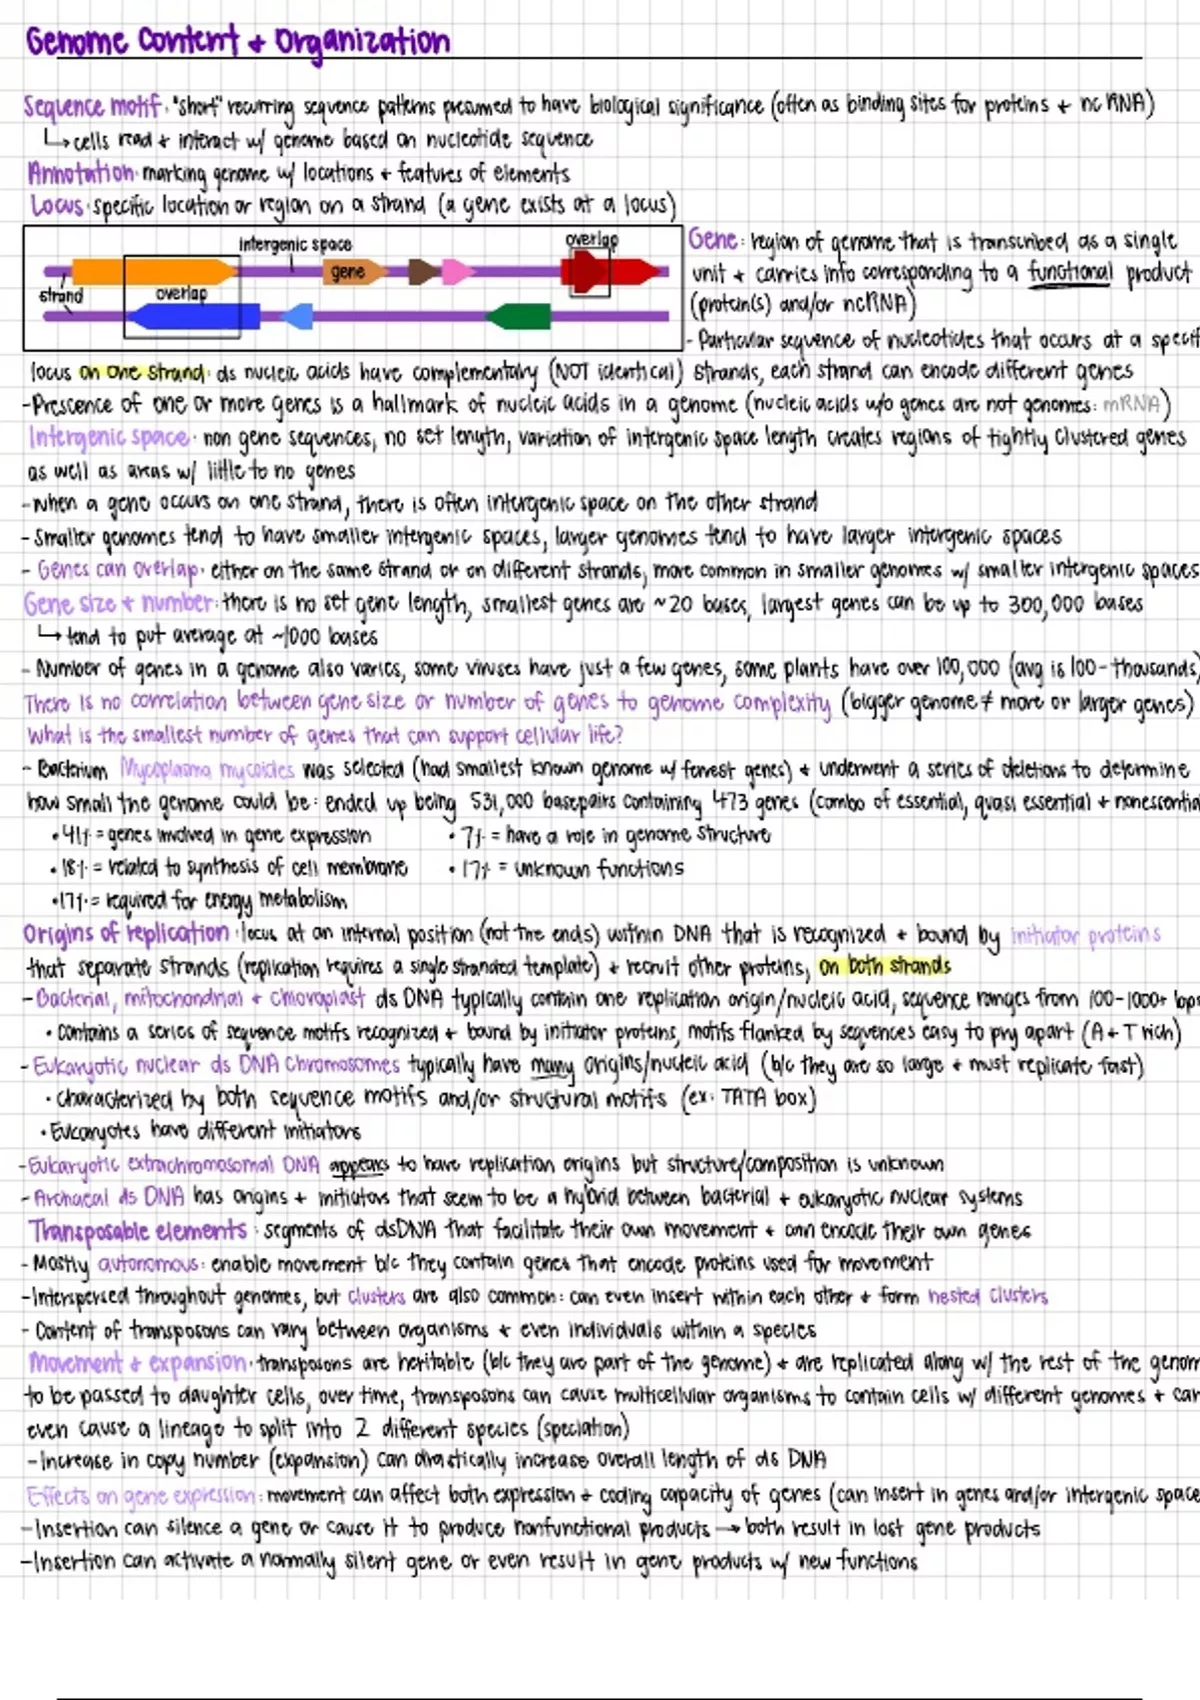 Genome Content + Organization
Sequence motif: "short" recurring sequence patterns presumed to have biological significance (often as binding sites for proteins + nc RNA)
↳ cells read + interact w/ genome based on nucleotide sequence
Annotation: marking genome w/ locations + features of elements
Locus: specific location or region on a strand (a gene exists at a locus)
intergenic space
overlap
gene
strand
overlap
Gene: region of genome that is transcribed as a single
unit + carries info corresponding to a functional product
(protein(s) and/or ncRNA)
- Particular sequence of nucleotides that occurs at a specif
locus on one strand: ds nucleic acids have complementary (NOT identical) strands, each strand can encode different genes
-Prescence of one or more genes is a hallmark of nucleic acids in a genome (nucleic acids w/o genes are not genomes: mRNA)
Intergenic space: non gene sequences, no set length, variation of intergenic space length creates regions of tightly clustered genes
as well as areas w/ little to no genes
-when a gene occurs on one strand, there is often intergenic space on the other strand
-Smaller genomes tend to have smaller intergenic spaces, larger genomes tend to have larger intergenic spaces
- Genes can overlap: either on the same strand or on different strands, more common in smaller genomes w/ smaller intergenic spaces
Gene size + number: there is no set gene length, smallest genes are ~20 bases, largest genes can be up to 300,000 bases
↳ tend to put average at ~1000 bases
- Number of genes in a genome also varies, some viruses have just a few genes, some plants have over 100,000 (avg is 100-thousands)
There is no correlation between gene size or number of genes to genome complexity (bigger genome ≠ more or larger genes)
What is the smallest number of genes that can support cellular life?
- Bacterium Mycoplasma mycoides was selected (had smallest known genome w/ fewest genes) + underwent a series of deletions to determine
how small the genome could be: ended up being 531,000 basepairs containing 473 genes (combo of essential, quasi essential + nonessentia
• 41% = genes involved in gene expression
• 7% = have a role in genome structure
• 18% = related to synthesis of cell membrane
• 17% = unknown functions
•17% = required for energy metabolism
Origins of replication: locus at an internal position (not the ends) within DNA that is recognized + bound by initiator proteins
that separate strands (replication requires a single stranded template) + recruit other proteins, on both strands
- Bacterial, mitochondrial + chloroplast ds DNA typically contain one replication origin/nucleic acid, sequence ranges from 100-1000+ bps
• Contains a series of sequence motifs recognized + bound by initiator proteins, motifs flanked by sequences easy to pry apart (A+T rich)
- Eukaryotic nuclear ds DNA Chromosomes typically have many origins/nucleic acid (b/c they are so large + must replicate fast)
• characterized by both sequence motifs and/or structural motifs (ex: TATA box)
• Eukaryotes have different initiators
-Eukaryotic extrachromosomal DNA appears to have replication origins but structure/composition is unknown
- Archaeal ds DNA has origins + initiators that seem to be a hybrid between bacterial + eukaryotic nuclear systems
Transposable elements: segments of dsDNA that facilitate their own movement + can encode their own genes
- Mostly autonomous: enable movement b/c they contain genes that encode proteins used for movement
-Interspersed throughout genomes, but clusters are also common: can even insert within each other + form nested clusters
- Content of transposons can vary between organisms + even individuals within a species
Movement + expansion: transposons are heritable (b/c they are part of the genome) + are replicated along w/ the rest of the genom
to be passed to daughter cells, over time, transposons can cause multicellular organisms to contain cells w/ different genomes + can
even cause a lineage to split into 2 different species (speciation)
-Increase in copy number (expansion) can drastically increase overall length of ds DNA
Effects on gene expression: movement can affect both expression + coding capacity of genes (can insert in genes and/or intergenic space
-Insertion can silence a gene or cause it to produce nonfunctional products → both result in lost gene products
-Insertion can activate a normally silent gene or even result in gene products w/ new functions